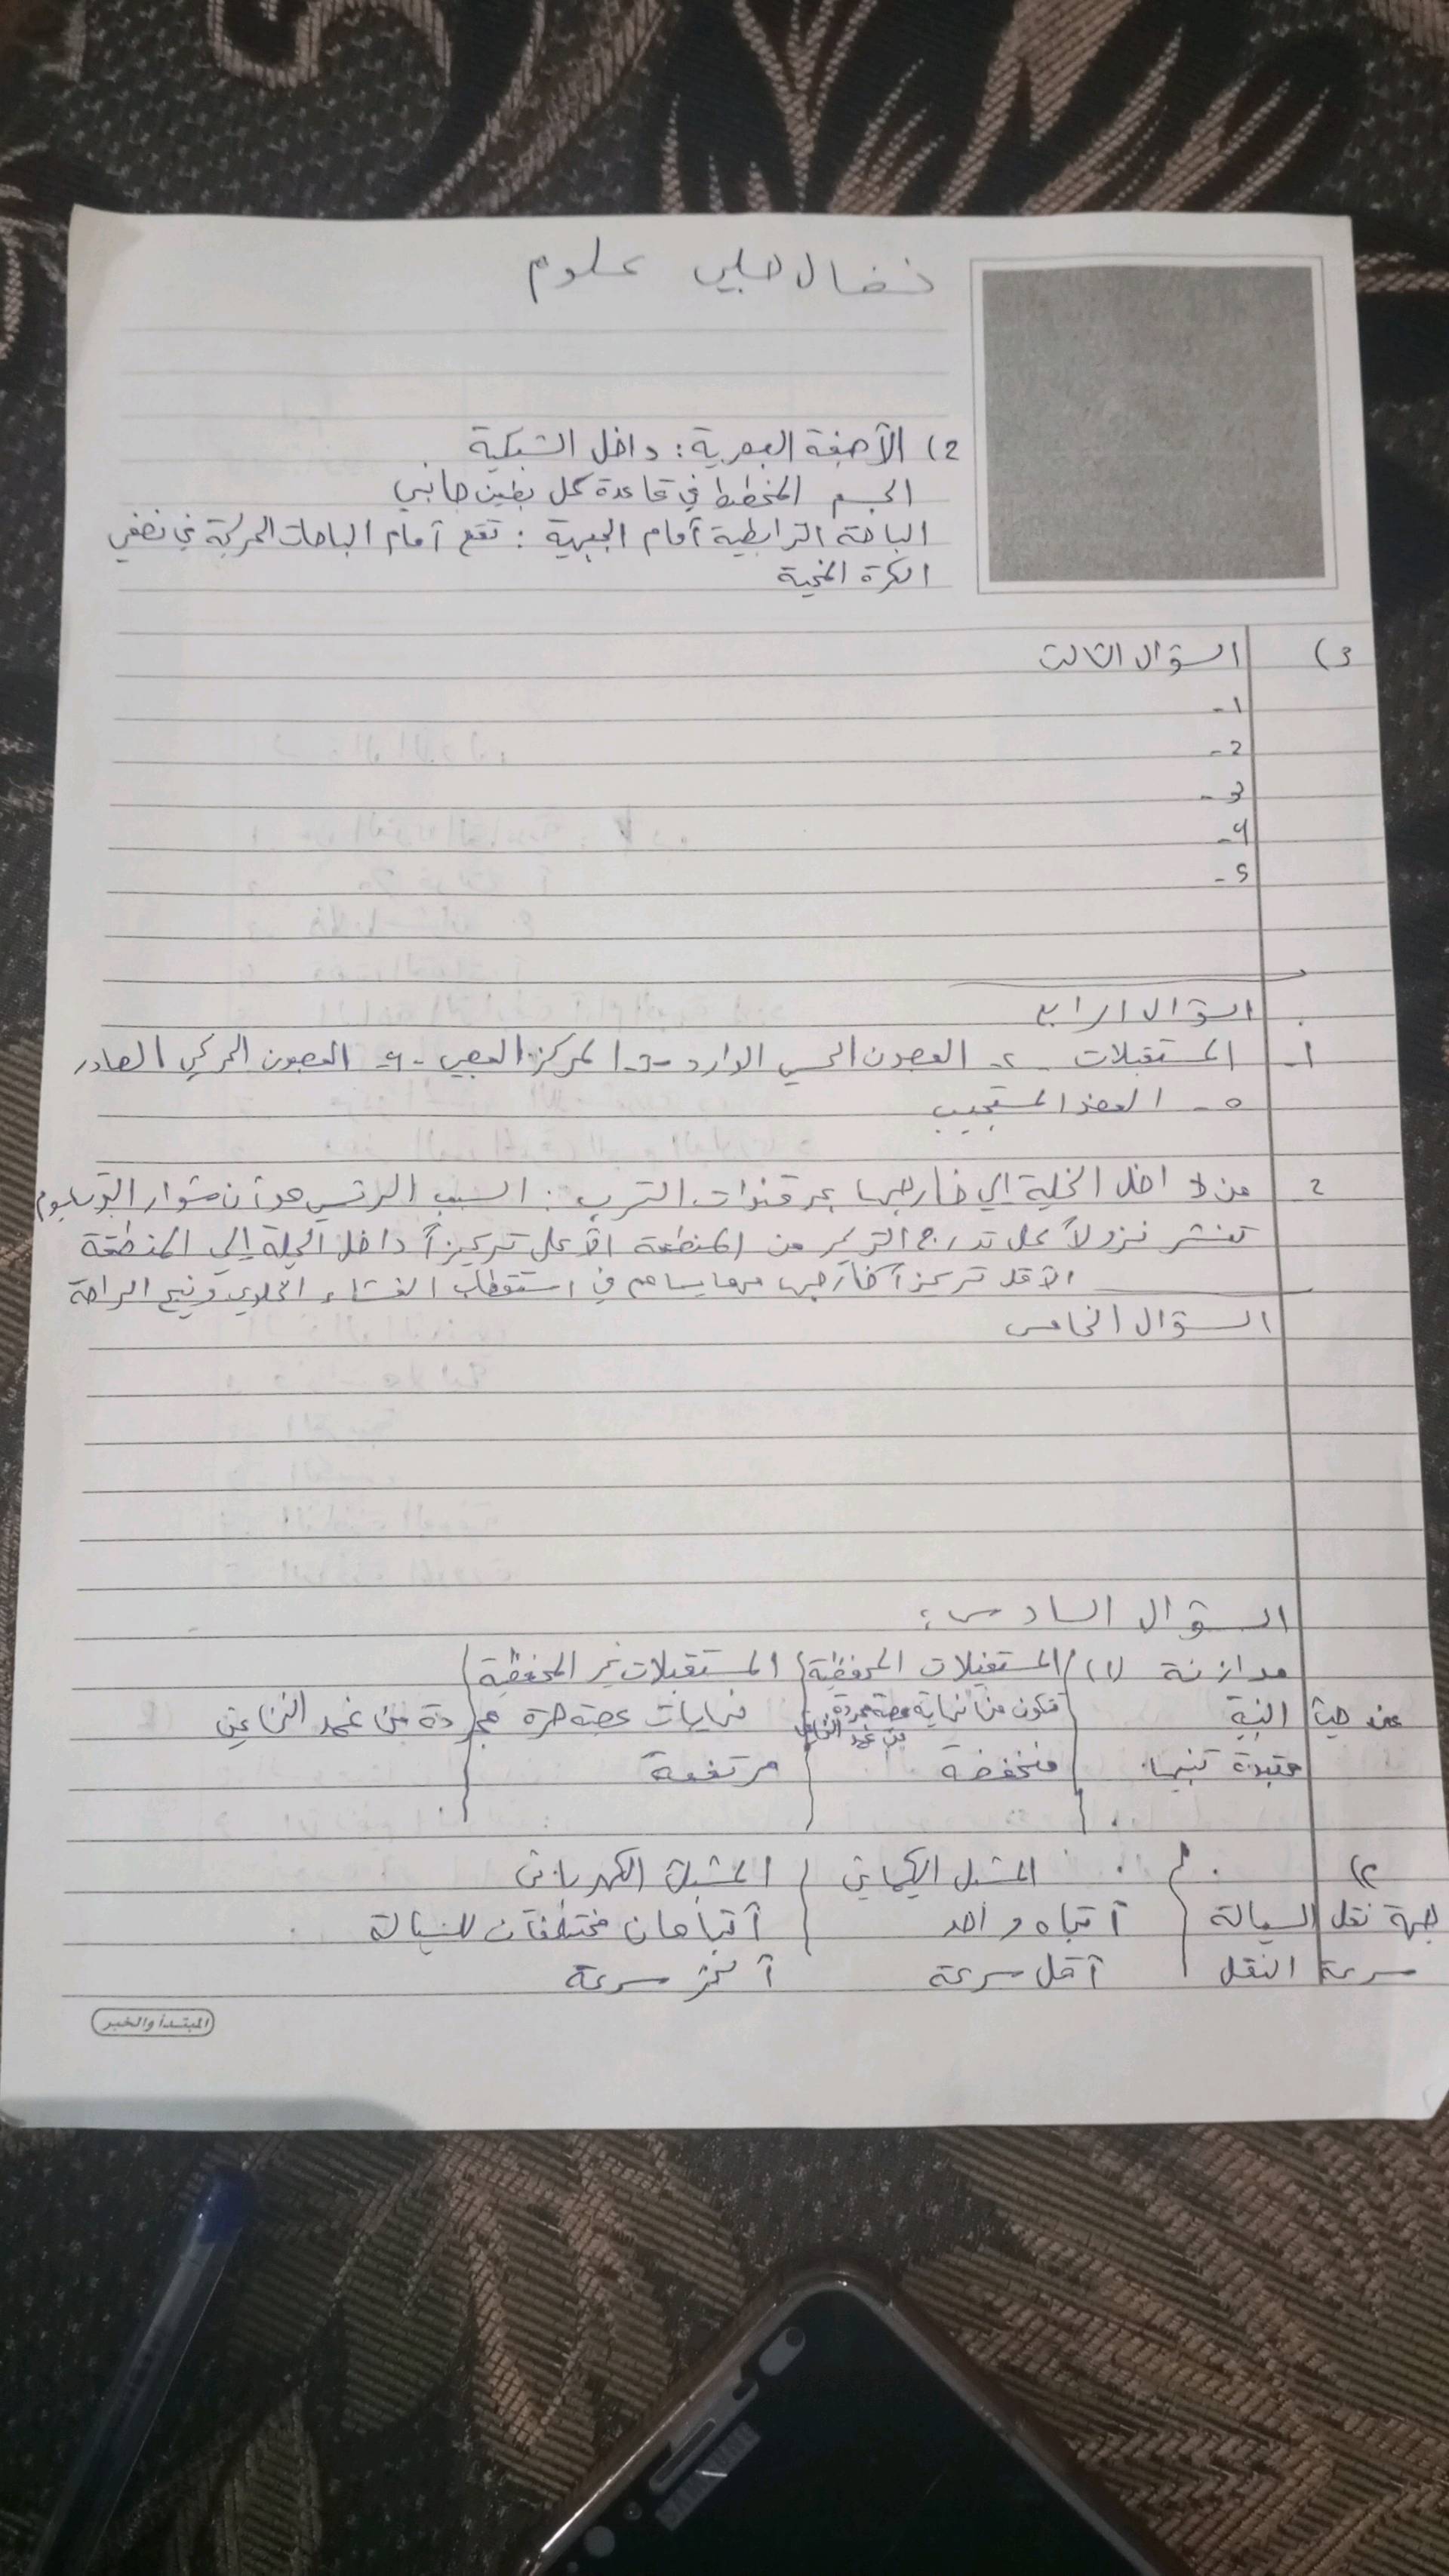 نضال حلبي علوم
2) الأصبغة البصرية: داخل الشبكية
الجسم المخطط في قاعدة كل بطين جانبي
الباحة الترابطية أمام الجبهية: تقع أمام الباحات الحركية في نصفي
الكرة المخية
3) السؤال الثالث
1-
2-
3-
4-
5-
السؤال الرابع
1- المستقبلات 2- العصبون الحسي الوارد 3- المركز العصبي 4- العصبون الحركي الصادر
5- العضو المستجيب
2 من داخل الخلية إلى خارجها عبر قنوات التسرب: السبب الرئيسي هو أن شوارد البوتاسيوم
تنتشر نزولاً على تدرج التركيز من المنطقة الأعلى تركيزاً داخل الخلية إلى المنطقة
الأقل تركيزاً خارجها مما يساهم في استقطاب الغشاء الخلوي الراحة
السؤال الخامس
السؤال السادس:
موازنة (1) المستقبلات المحفظية المستقبلات غير المحفظية
من حيث البنية تتكون من نهاية عصبية مجردة من غمد النخاعين نهايات عصبية حرة مجردة من غمد النخاعين
عتبة تنبيهها منخفضة مرتفعة
2) المشبك الكيميائي المشبك الكهربائي
جهة نقل السيالة اتجاه واحد أتجاهان مختلفان للسيالة
سرعة النقل أقل سرعة أكثر سرعة
المبتدأ والخبر